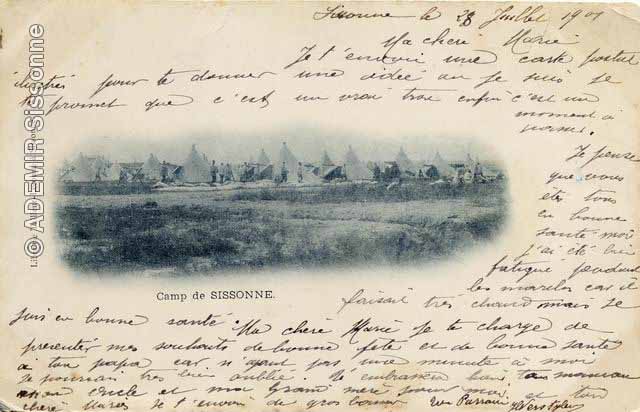 Sissonne le 28 Juillet 1901
Ma chère Marie
Je t'envoie une carte postal
ilustrés pour te donner une idée ou je suis je
te promet que c'est un vrai trou enfin c'est un
moment à
passer.
Je pense
que vous
êtes tous
en bonne
santé moi
j'ai été bien
fatigué pendant
les marches car il
faisait très chaud mais je
suis en bonne santé. Ma chère Marie je te charge de
presenter mes souhaits de bonne fête et de bonne santé
a ton papa car n'ayant pas une minute à moi
je pourrais très bien oublié. J'embrasse bien ta maman
mon oncle et ma Grand mère pour moi et toi
chère Marie je t'envoie de gros
Camp de SISSONNE.
© ADEMIR-Sissonne